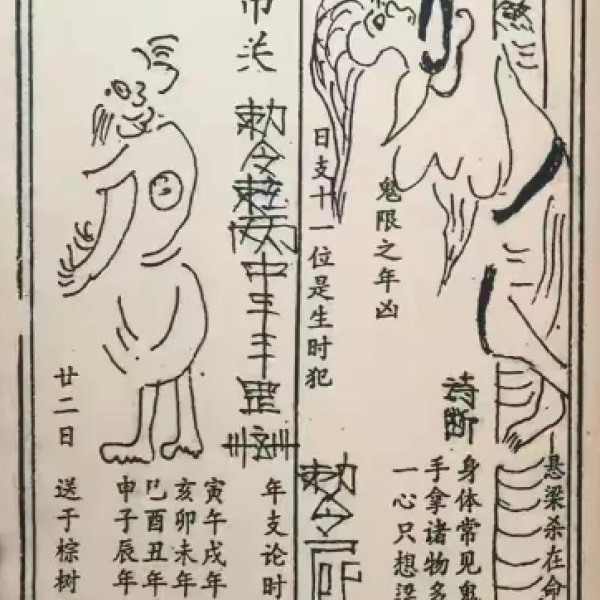 煞
悬梁杀在命
诗断
身体常见鬼
手拿诸物多
一心只想梁
鬼限之年凶
日支十一位是生时犯
敕令
关
敕令
年支论时
寅午戌年
亥卯未年
巳酉丑年
申子辰年
廿二日
送于棕树